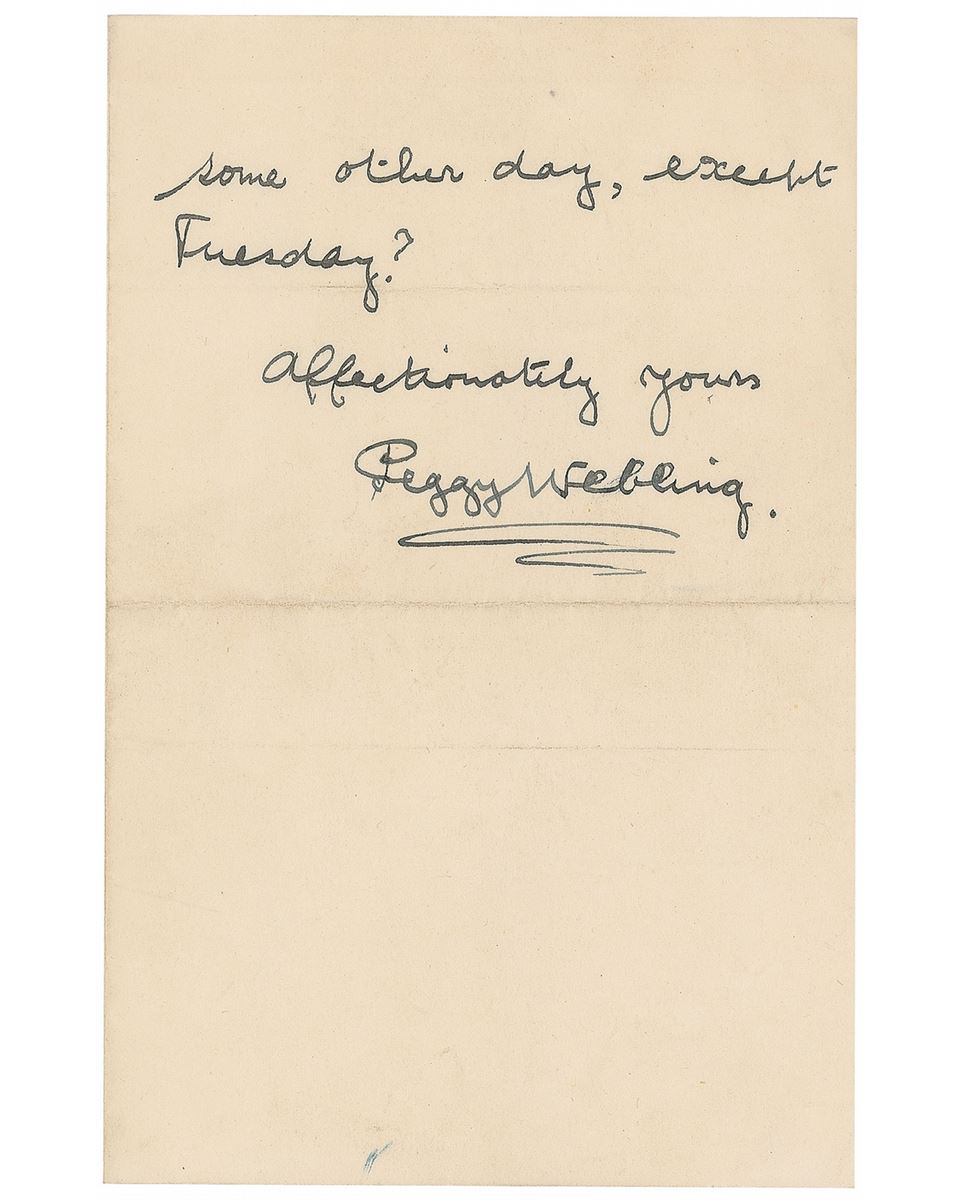 some other day, except
Tuesday?
Affectionately yours
Peggy Webling.